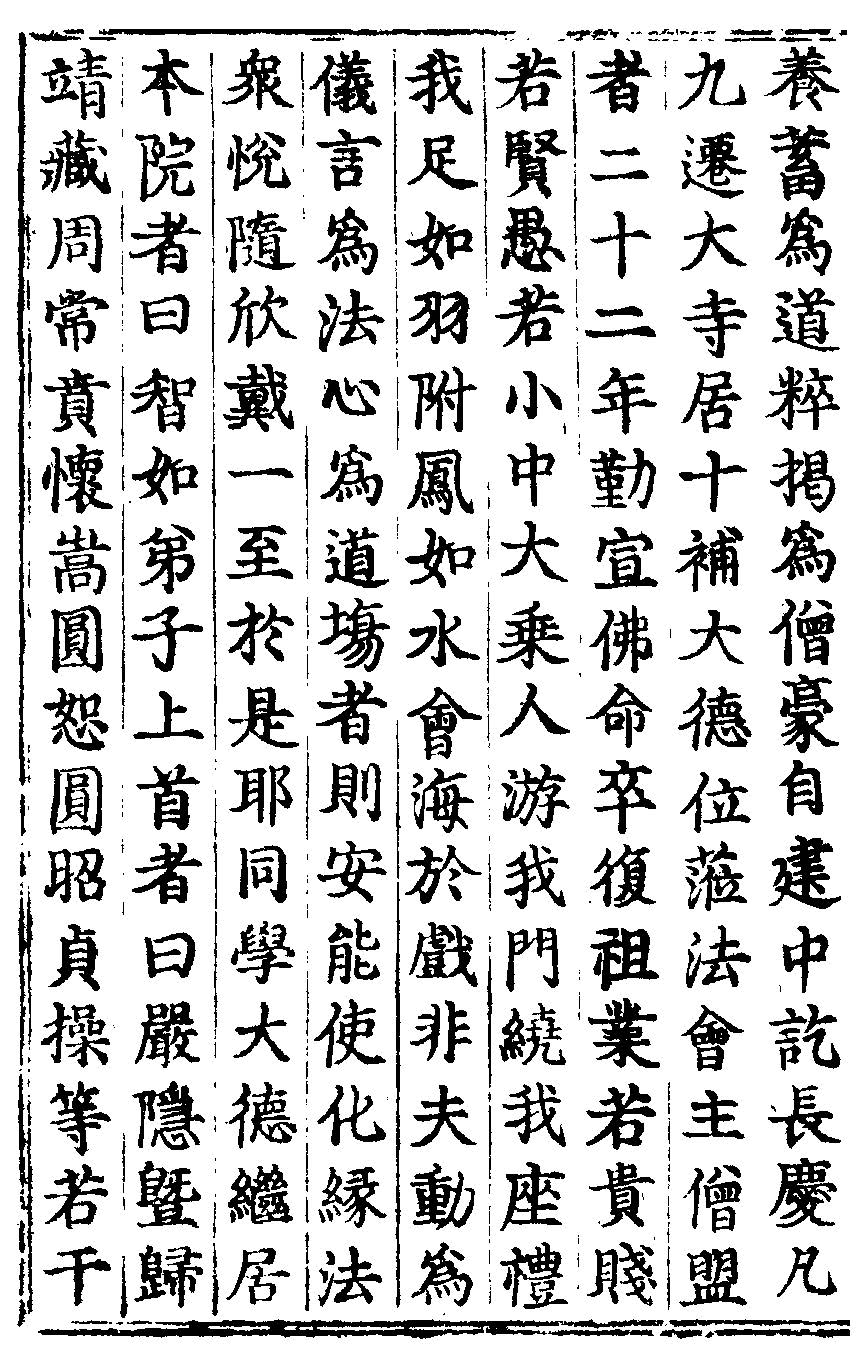 養蓄爲道粹掲爲僧豪自建中訖長慶凡
九遷大寺居十補大德位蒞法會主僧盟
者二十二年勤宣佛命卒復祖業若貴賤
若賢愚若小中大乗人游我門繞我座禮
我足如羽附鳳如水會海於戲非夫動爲
儀言爲法心爲道塲者則安能使化縁法
衆悅隨欣戴一至於是耶同學大德繼居
本院者曰智如弟子上首者曰嚴隱曁歸
靖藏周常賁懷嵩圓恕圓昭貞操等若干